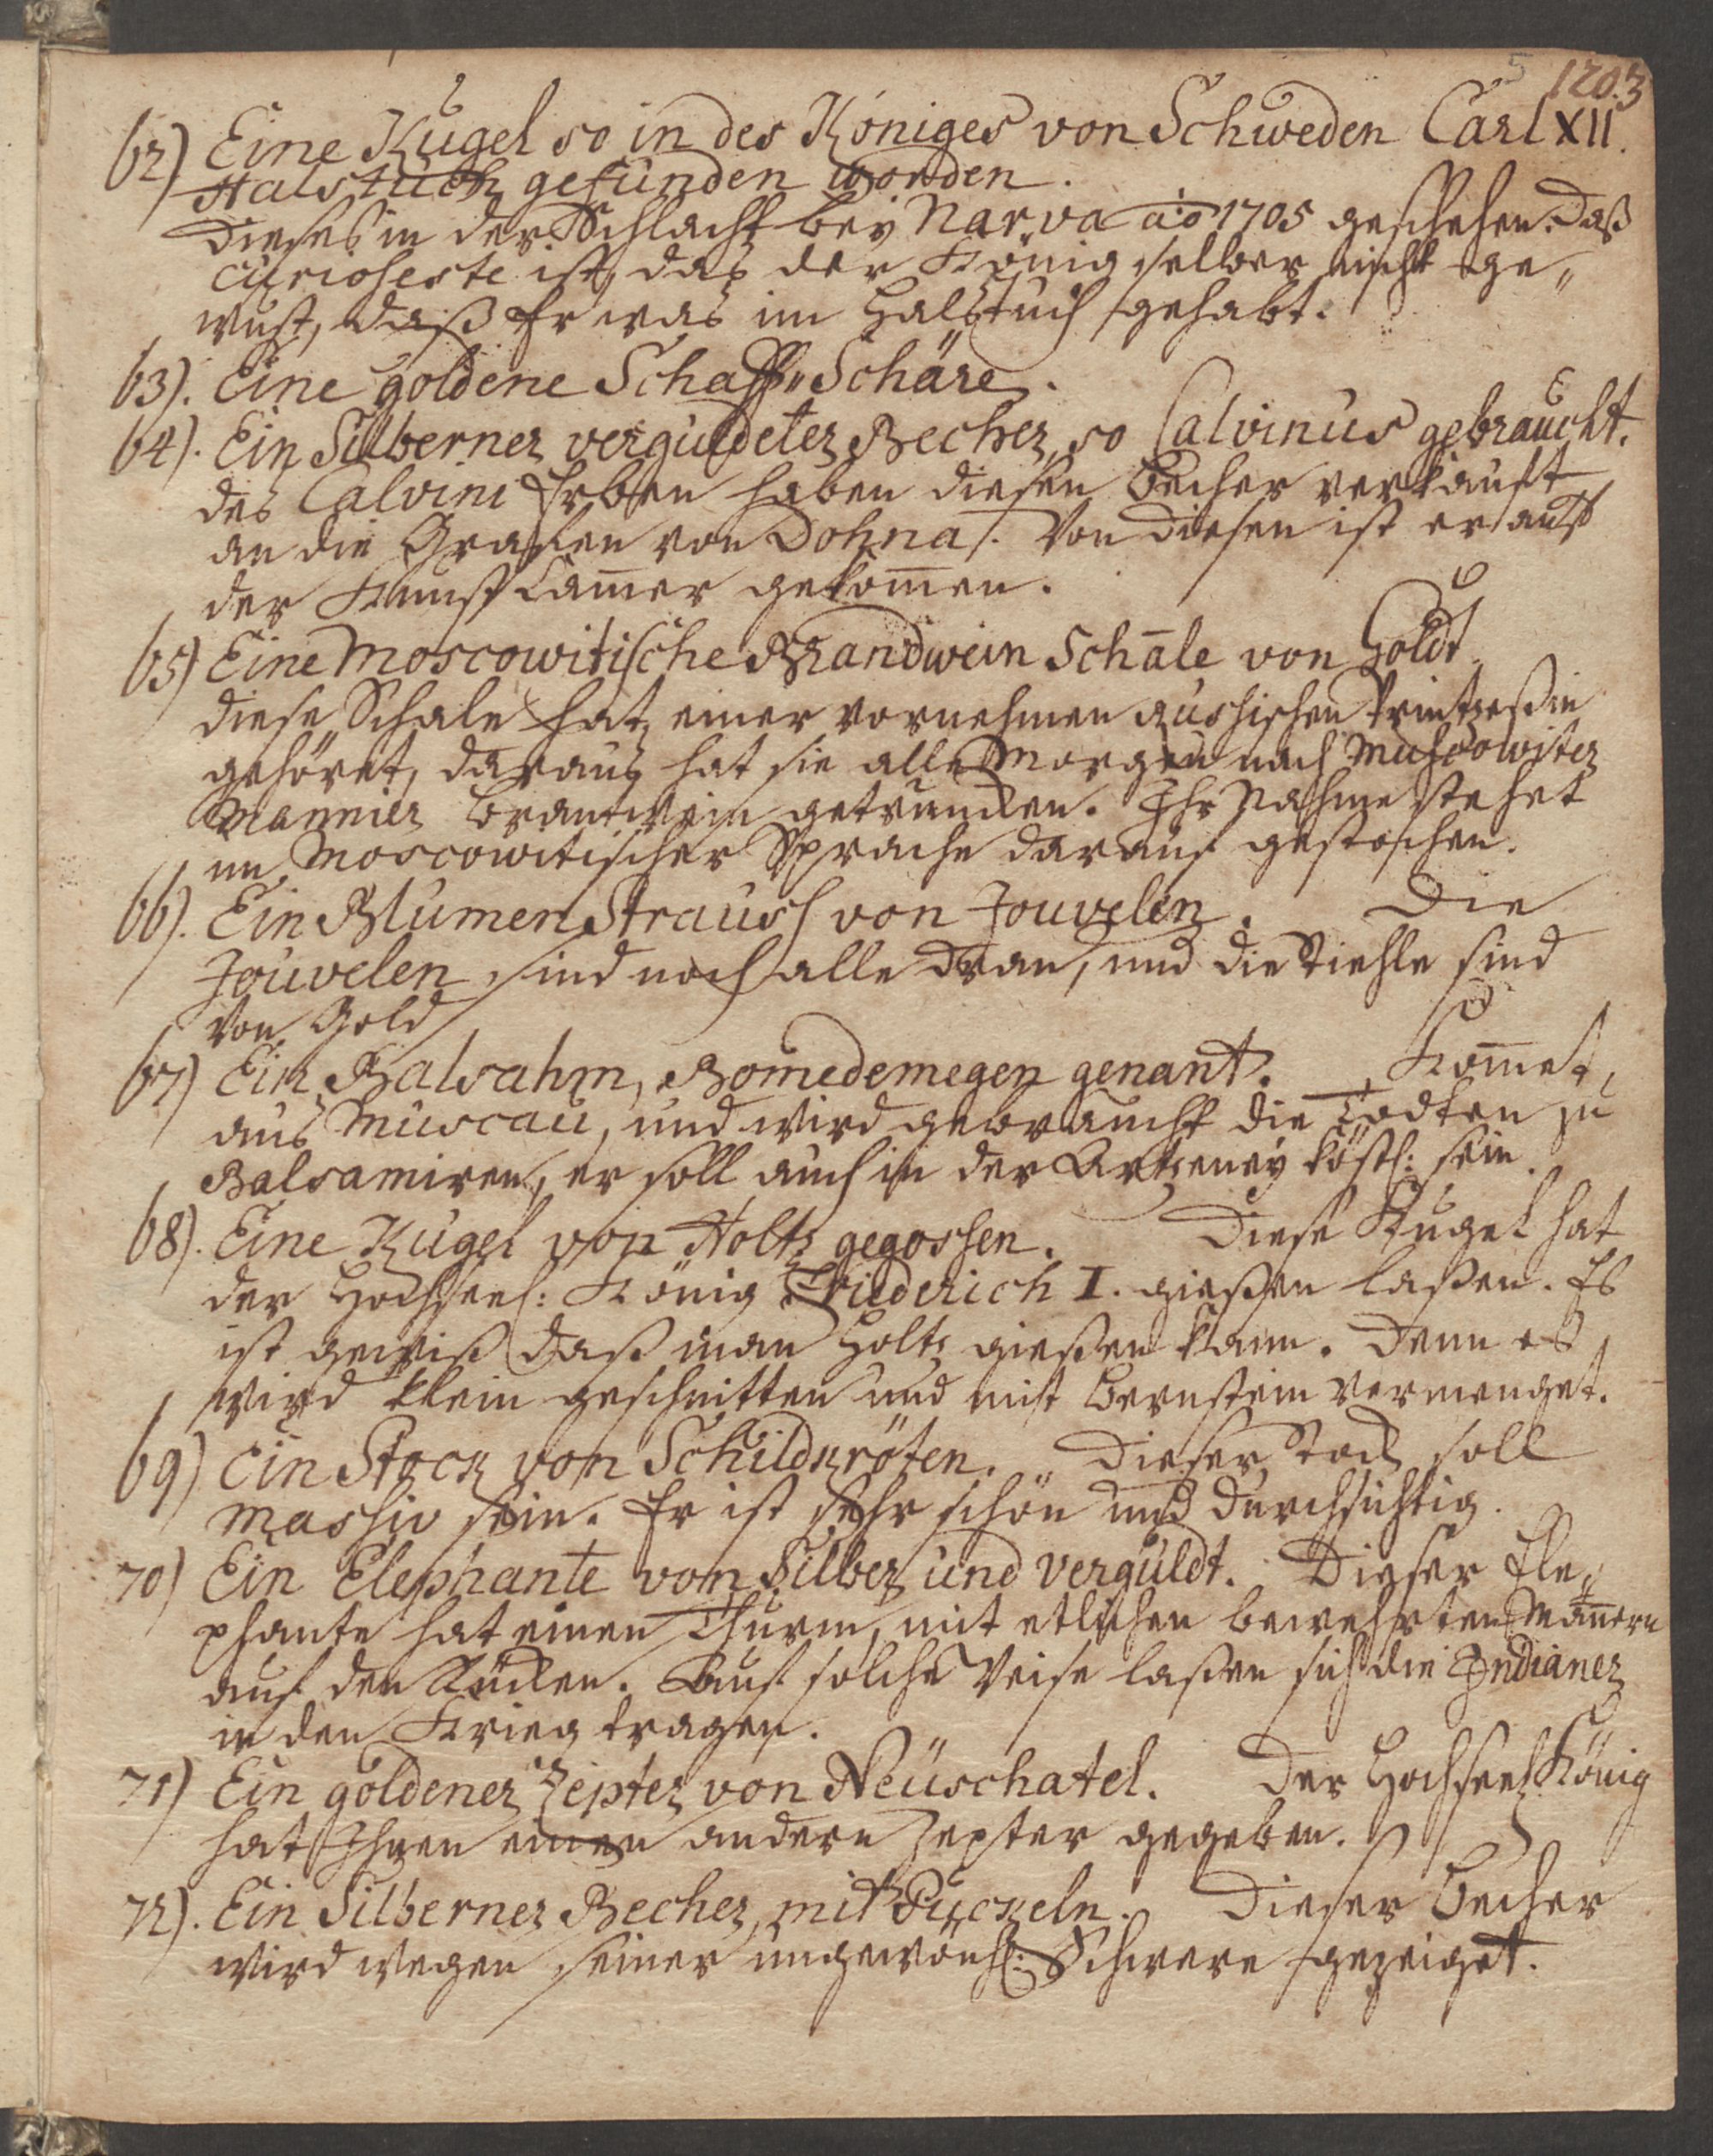 5 1203
62) Eine Kugel so in des Königes von Schweden Carl XII.
Halstuch gefunden worden.
Dieses in der Schlacht bey Narva aō 1705 geschehen. Daß
curioseste ist, daß der König selber nicht ge„
wust, daß Er was im Halstuch gehabt.
63). Eine goldene Schaff„Schäre.
64). Ein Silberner verguldeter Becher, so Calvinus gebraucht.
des Calvini Erben haben diesen Becher verkauft
an die Grafen von Dohna. Von diesen ist er auf
der Kunst Cam̄er gekom̄en.
65) Eine Moscowitische Brandwein Schale von Goldt
diese Schale hat einer vornehmen Russischen Printzeßin
gehöret, daraus hat sie alle Morgen nach Muscowiter
Mannier Brantwein getruncken. Ihr Nahme stehet
in Moscowitischer Sprache darauf gestochen.
66). Ein Blumen Straus von Jouvelen. Die
Jouvelen sind noch alle dran, und die Stiehle sind
von Gold
67) Ein Balsahm, Bomedemegen genant. Kom̄et,
aus Muscau, und wird gebraucht die Todten zu
Balsamiren, er soll auch in der Artzeney köstl: sein.
68). Eine Kugel von Holtz gegossen. Diese Kugel hat
der Hochseel: König Friederich I. gießen laßen. Es
ist gewiß daß man Holtz gießen kann. Denn es
wird klein geschnitten und mit Bernstein vermenget.
69) Ein Stock von Schildkröten. Dieser Stock soll
Massiv sein. Er ist sehr schön und durchsichtig.
70) Ein Elephante von Silber und verguldt. Dieser Ele„
phante hat einen Thurm, mit etlichen bewehrten Män̄ern
auf den Rücken. Auf solche Weise laßen sich die Indianer
in den Krieg tragen.
71) Ein goldener Zepter von Neuschatel. Der Hochseel König
hat Ihnen einen andern Zepter gegeben.
72). Ein Silberner Becher, mit Puckeln. Dieser Becher
wird wegen seiner ungewönl: Schwere gezeiget.